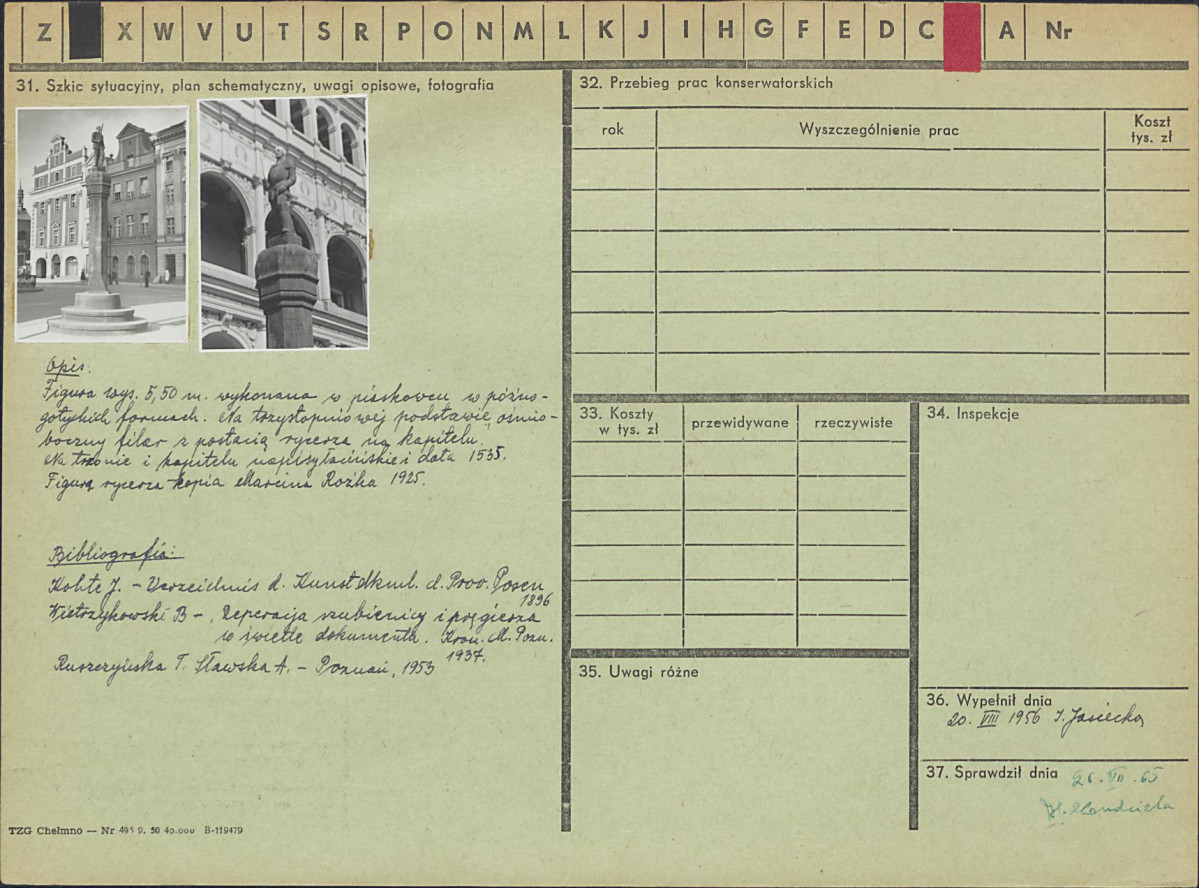 Z X W V U T S R P O N M L K J I H G F E D C A Nr
31. Szkic sytuacyjny, plan schematyczny, uwagi opisowe, fotografia
Opis.
Figura wys. 5,50 m. wykonana w piaskowcu w późno-
gotyckich formach. Na trzystopniowej podstawie, ośmio-
boczny filar z postacią rycerza na kapitelu.
Na trzonie i kapitelu napisy łacińskie i data 1535.
Figura rycerza kopia Marcina Rożka 1925.
Bibliografia:
Kohte J. - Verzeichnis d. Kunstdkml. d. Prov. Posen
1896
Wietrzykowski B - Reperacja szubienicy i pręgierza
w świetle dokumentu. Kron. M. Pozn.
1937.
Ruszczyńska T. Sławska A. - Poznań, 1953
TZG Chełmno — Nr 495 9. 50 40.000 B-119479
32. Przebieg prac konserwatorskich
rok
Wyszczególnienie prac
Koszt
tys. zł
33. Koszty
w tys. zł
przewidywane
rzeczywiste
34. Inspekcje
35. Uwagi różne
36. Wypełnił dnia
20. VIII 1956 I. Jasiecka
37. Sprawdził dnia
65